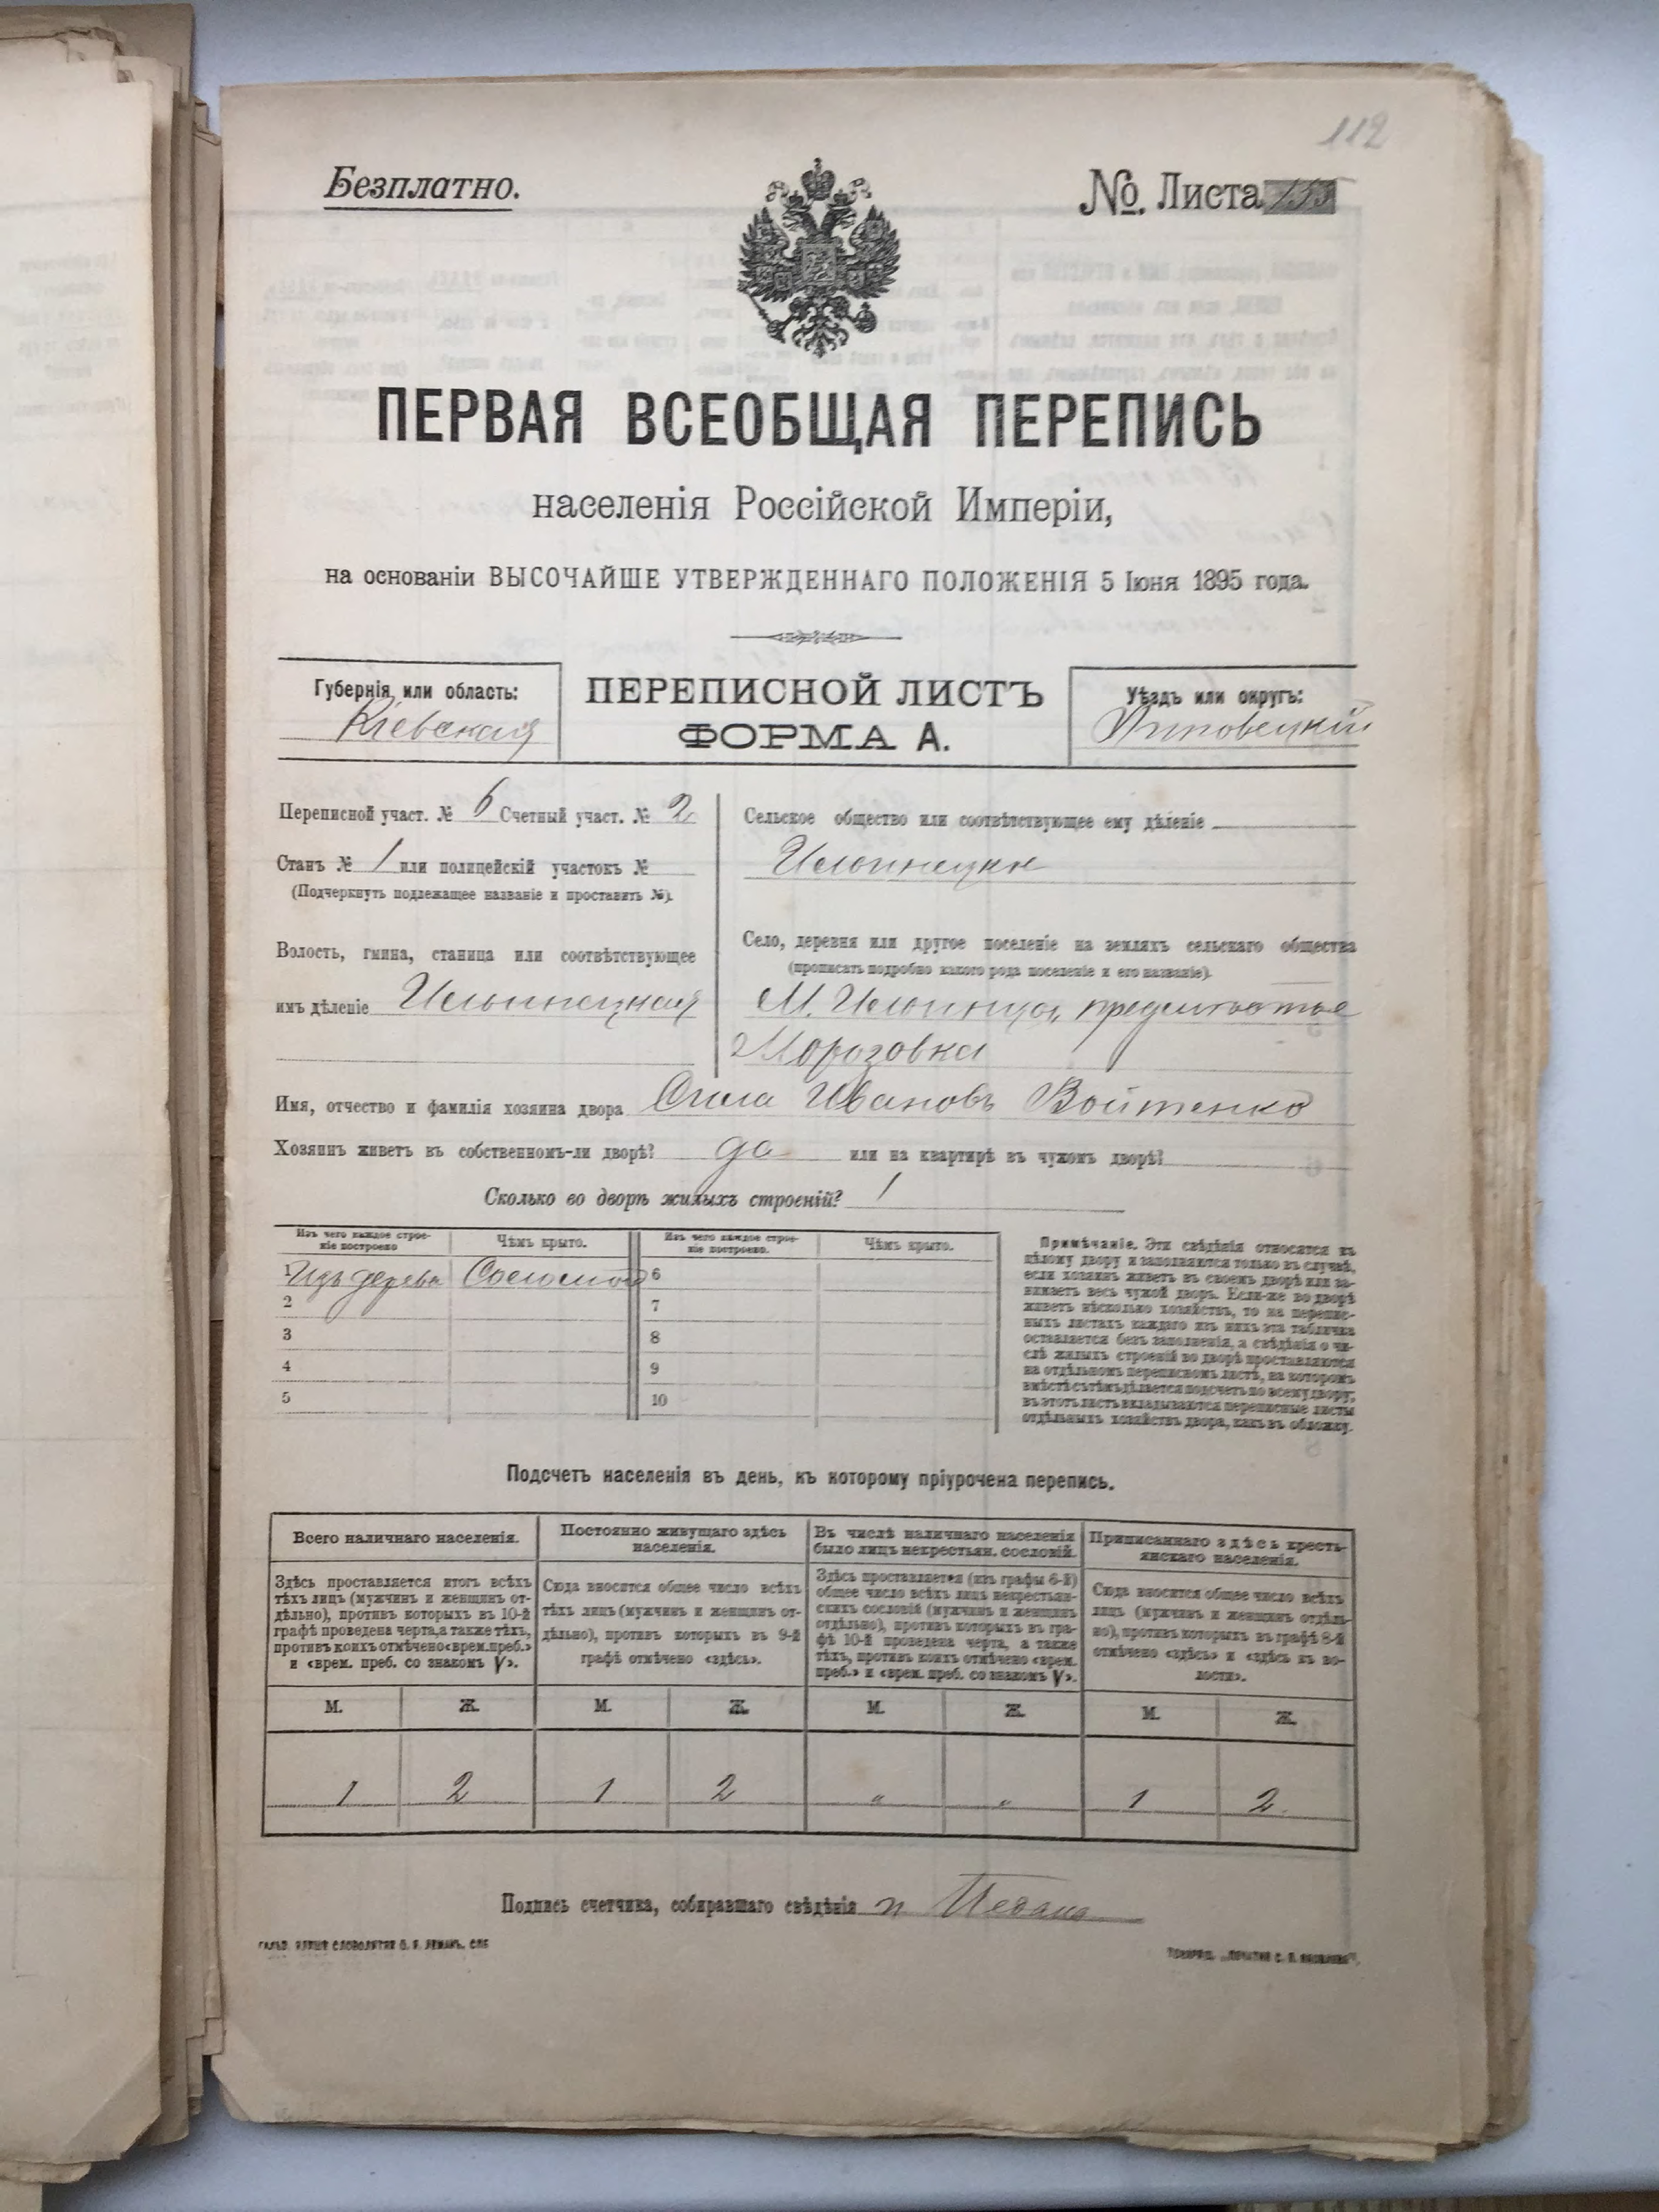 112
Безплатно.
№. Листа
ПЕРВАЯ ВСЕОБЩАЯ ПЕРЕПИСЬ
населенія Россійской Имперіи,
на основаніи ВЫСОЧАЙШЕ УТВЕРЖДЕННАГО ПОЛОЖЕНІЯ 5 Іюня 1895 года.
Губернія или область:
Кіевская
ПЕРЕПИСНОЙ ЛИСТЪ
ФОРМА А.
Уѣздъ или округъ:
Липовецкій
Переписной участ. № 6 Счетный участ. № 2
Станъ № 1 или полицейскій участокъ №
(Подчеркнуть подлежащее названіе и проставить №).
Волость, гмина, станица или соотвѣтствующее
имъ дѣленіе Ильинецкая
Сельское общество или соотвѣтствующее ему дѣленіе
Ильинецкое
Село, деревня или другое поселеніе на земляхъ сельскаго общества
(прописать подробно какого рода поселеніе и его названіе).
М. Ильинцы, предмѣстье
Морозовка
Имя, отчество и фамилія хозяина двора Сила Ивановъ Войтенко
Хозяинъ живетъ въ собственномъ-ли дворѣ? да или на квартирѣ въ чужомъ дворѣ?
Сколько во дворѣ жилыхъ строеній? 1
Изъ чего каждое строеніе построено
Чѣмъ крыто.
Изъ чего каждое строеніе построено.
Чѣмъ крыто.
1 Изъ дерева Соломой 6
2 7
3 8
4 9
5 10
Примѣчаніе. Эти свѣдѣнія относятся къ
цѣлому двору и заполняются только въ случаѣ,
если хозяинъ живетъ въ своемъ дворѣ или за-
нимаетъ весь чужой дворъ. Если-же во дворѣ
живетъ нѣсколько хозяйствъ, то на перепис-
ныхъ листахъ каждаго изъ нихъ эта табличка
оставляется безъ заполненія, а свѣдѣнія о чи-
слѣ жилыхъ строеній во дворѣ проставляются
на отдѣльномъ переписномъ листѣ, на которомъ
вмѣстѣ съ тѣмъ дѣлается подсчетъ по всему двору;
въ этотъ листъ вкладываются переписные листы
отдѣльныхъ хозяйствъ двора, какъ въ обложку.
Подсчетъ населенія въ день, къ которому пріурочена перепись.
Всего наличнаго населенія.
Постоянно живущаго здѣсь
населенія.
Въ числѣ наличнаго населенія
было лицъ некрестьян. сословій.
Приписаннаго здѣсь кресть-
янскаго населенія.
Здѣсь проставляется итогъ всѣхъ
тѣхъ лицъ (мужчинъ и женщинъ от-
дѣльно), противъ которыхъ въ 10-й
графѣ проведена черта, а также тѣхъ,
противъ коихъ отмѣчено «врем. преб.»
и «врем. преб. со знакомъ V».
Сюда вносится общее число всѣхъ
тѣхъ лицъ (мужчинъ и женщинъ от-
дѣльно), противъ которыхъ въ 9-й
графѣ отмѣчено «здѣсь».
Здѣсь проставляется (изъ графы 6-й)
общее число всѣхъ лицъ некрестьян-
скихъ сословій (мужчинъ и женщинъ
отдѣльно), противъ которыхъ въ гра-
фѣ 10-й проведена черта, а также
тѣхъ, противъ коихъ отмѣчено «врем.
преб.» и «врем. преб. со знакомъ V».
Сюда вносится общее число всѣхъ
лицъ (мужчинъ и женщинъ отдѣль-
но), противъ которыхъ въ графѣ 8-й
отмѣчено «здѣсь» и «здѣсь къ во-
лости».
М. Ж. М. Ж. М. Ж. М. Ж.
1 2 1 2 " " 1 2
Подпись счетчика, собиравшаго свѣдѣнія